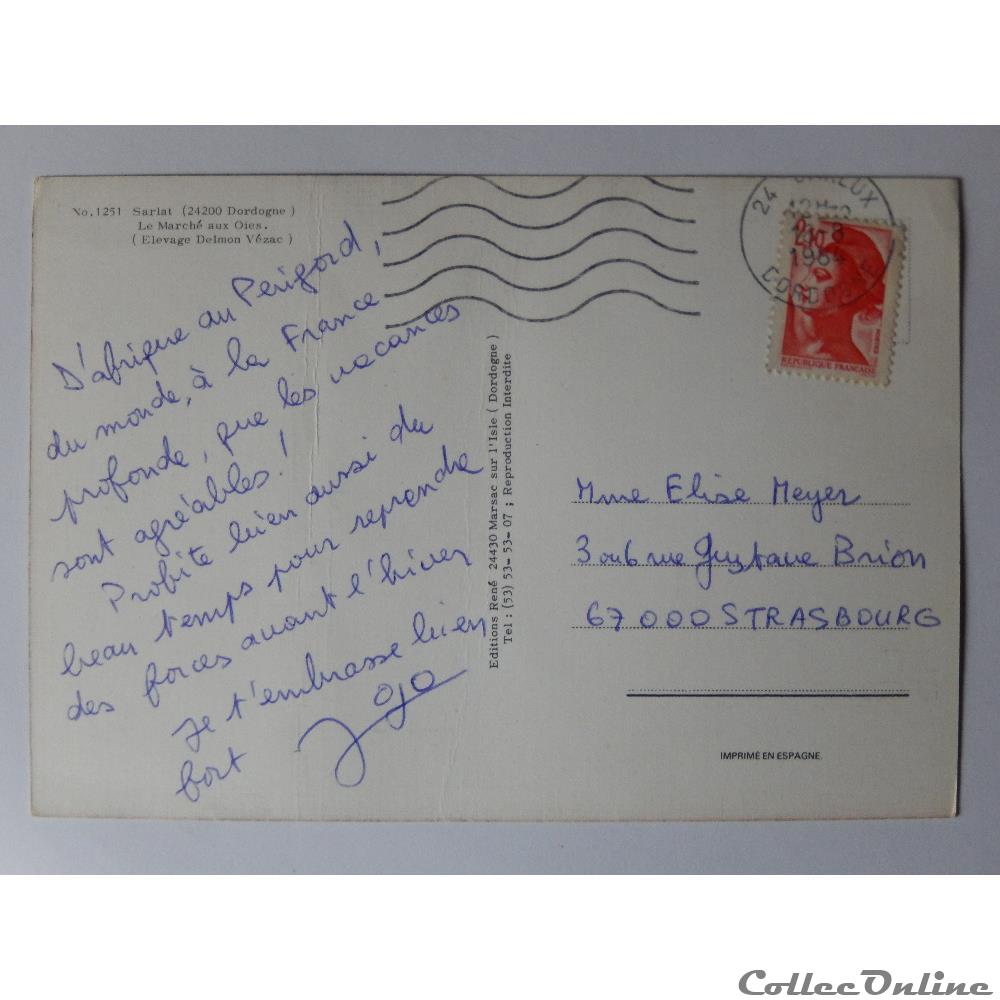 No. 1251 Sarlat (24200 Dordogne)
Le Marché aux Oies.
(Elevage Delmon Vézac)
D'afrique au Périgord,
du monde, à la France
profonde, que les vacances
sont agréables!
Profite bien aussi du
beau temps pour reprendre
des forces avant l'hiver
Je t'embrasse bien
fort Jojo
Editions René 24430 Marsac sur l'Isle (Dordogne)
Tel : (53) 53-53-07 ; Reproduction Interdite
24
12H
8
1984
DORDOGNE
2,10
REPUBLIQUE FRANCAISE
Mme Elise Meyer
3 ou 6 rue Gustave Brion
67000 STRASBOURG
IMPRIMÉ EN ESPAGNE
CollecOnline